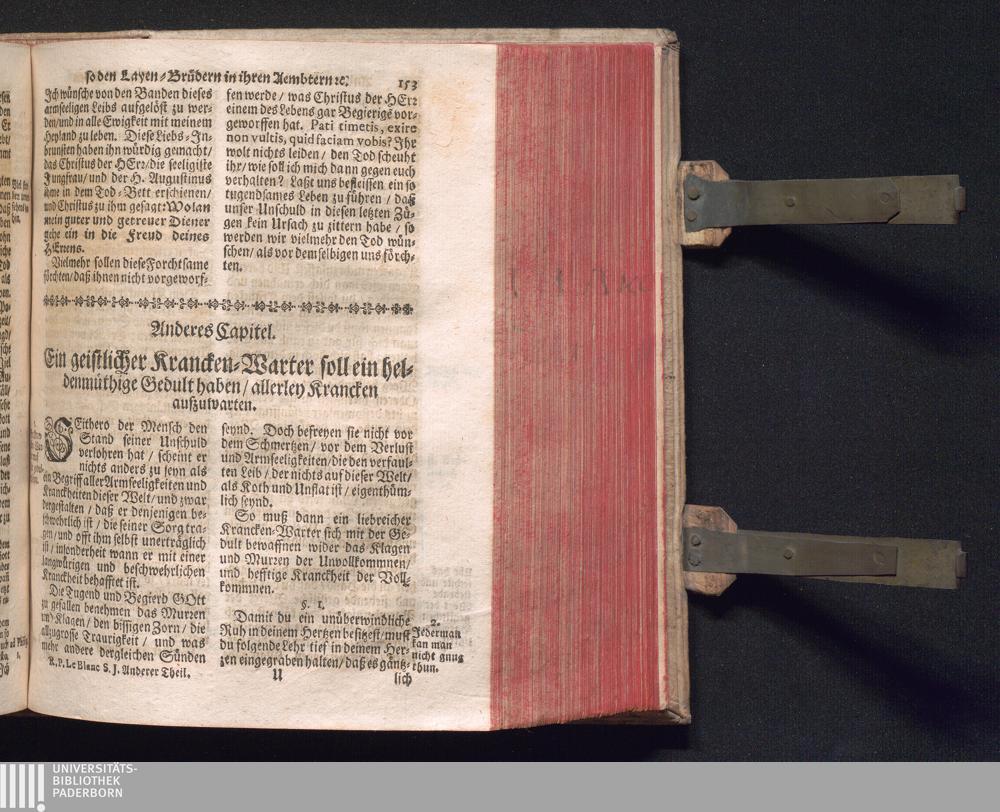 so den Layen-Brüdern in ihren Aembtern ꝛc.
153
Ich wünsche von den Banden dieses
armseeligen Leibs aufgelöst zu wer-
den/und in alle Ewigkeit mit meinem
Heyland zu leben. Diese Liebs-In-
brunsten haben ihn würdig gemacht/
das Christus der HErꝛ/die seeligiste
Jungfrau/und der H. Augustinus
ihme in dem Tod-Bett erschienen/
und Christus zu ihm gesagt: Wolan
mein guter und getreuer Diener
gehe ein in die Freud deines
HErrens.
Vielmehr sollen diese Forchtsame
förchten/daß ihnen nicht vorgeworf-
fen werde/ was Christus der HErꝛ
einem des Lebens gar Begierige vor-
geworffen hat. Pati timetis, exire
non vultis, quid faciam vobis? Ihr
wolt nichts leiden/ den Tod scheuht
ihr/ wie soll ich mich dann gegen euch
verhalten? Laßt uns befleissen ein so
tugendsames Leben zu führen/ daß
unser Unschuld in diesen letzten Zü-
gen kein Ursach zu zittern habe/ so
werden wir vielmehr den Tod wün-
schen/ als vor demselbigen uns förch-
ten.
Anderes Capitel.
Ein geistlicher Krancken-Warter soll ein hel-
denmüthige Gedult haben/ allerley Krancken
außzuwarten.
SEithero der Mensch den
Stand seiner Unschuld
verlohren hat/ scheint er
nichts anders zu seyn als
ein Begriff aller Armseeligkeiten und
Kranckheiten dieser Welt/ und zwar
dergestalten/ daß er denjenigen be-
schwehrlich ist/ die seiner Sorg tra-
gen/und offt ihm selbst unerträglich
ist/ insonderheit wann er mit einer
langwürigen und beschwehrlichen
Kranckheit behafftet ist.
Die Tugend und Begierd GOtt
zu gefallen benehmen das Murren
und Klagen/ den bissigen Zorn/ die
allzugrosse Traurigkeit/ und was
mehr andere dergleichen Sünden
seynd. Doch befreyen sie nicht vor
dem Schmertzen/ vor dem Verlust
und Armseeligkeiten/die den verfaul-
ten Leib/ der nichts auf dieser Welt/
als Koth und Unflat ist/ eigenthüm-
lich seynd.
So muß dann ein liebreicher
Krancken-Warter sich mit der Ge-
dult bewaffnen wider das Klagen
und Murren der Unvollkommnen/
und hefftige Kranckheit der Voll-
kommnen.
§. 1.
Damit du ein unüberwindliche
Ruh in deinem Hertzen besitzest/must
du folgende Lehr tief in deinem Her-
zen eingegraben halten/ daß es gäntz-
2.
Jederman
kan man
nicht gnug
thun.
R. P. Le Blanc S. J. Anderer Theil.
U
lich
UNIVERSITÄTS-
BIBLIOTHEK
PADERBORN